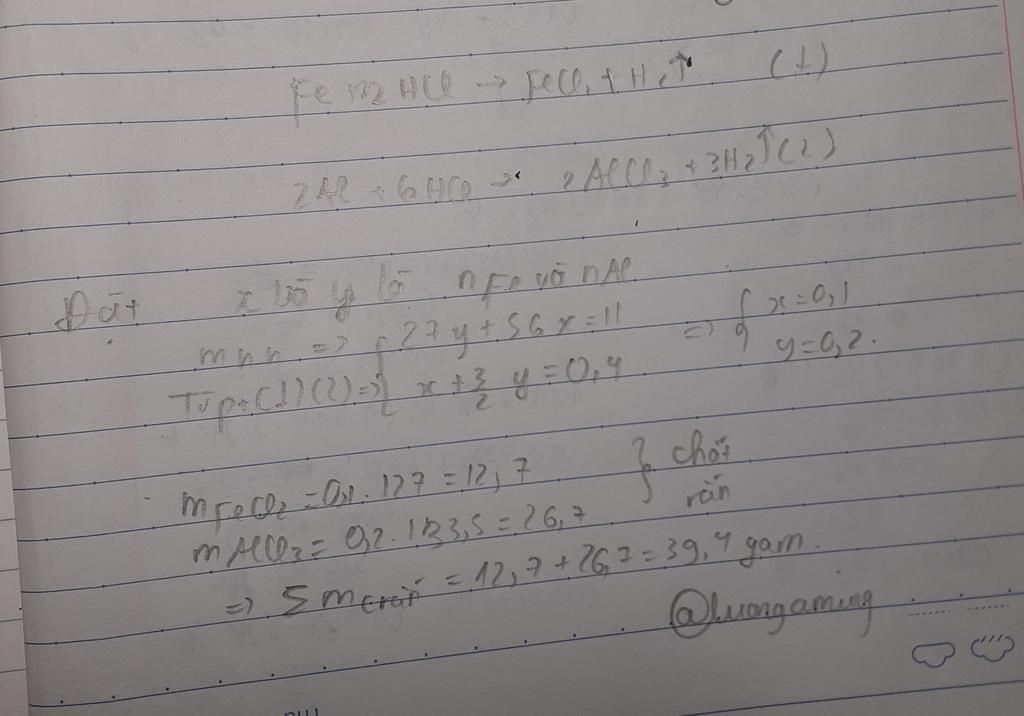 Fe + 2HCl → FeCl₂ + H₂↑ (1)
2Al + 6HCl → 2AlCl₃ + 3H₂↑ (2)
Đặt x và y là nFe và nAl
mhh => { 27y + 56x = 11 => { x = 0,1
Từ pt (1)(2) => { x + 3/2 y = 0,4 y = 0,2.
mFeCl₂ = 0,1 . 127 = 12,7 } chất
mAlCl₃ = 0,2 . 133,5 = 26,7 rắn
=> Σ m = 12,7 + 26,7 = 39,4 gam.
@luongaming